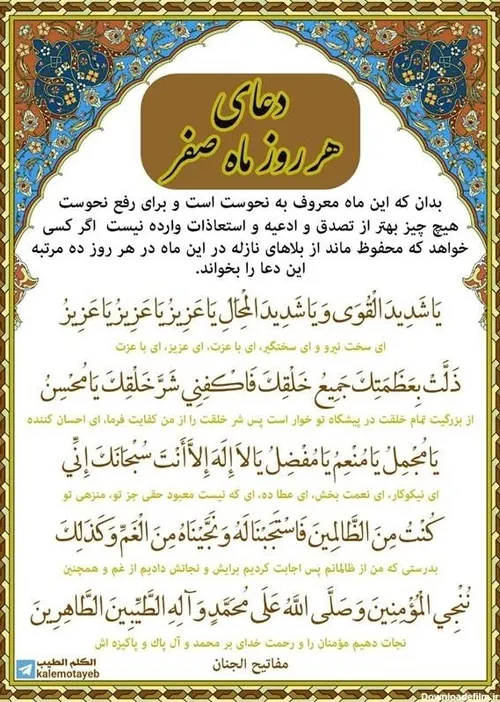 دعای
هر روز ماه صفر
بدان که این ماه معروف به نحوست است و برای رفع نحوست
هیچ چیز بهتر از تصدق و ادعیه و استعاذات وارده نیست اگر کسی
خواهد که محفوظ ماند از بلاهای نازله در این ماه در هر روز ده مرتبه
این دعا را بخواند.
يَا شَدِيدَ الْقُوَى وَ يَا شَدِيدَ الْمِحَالِ يَا عَزِيزُ يَا عَزِيزُ يَا عَزِيزُ
ای سخت نیرو و ای سختگیر، ای با عزت، ای عزیز، ای با عزت
ذَلَّتْ بِعَظَمَتِكَ جَمِيعُ خَلْقِكَ فَاكْفِنِي شَرَّ خَلْقِكَ يَا مُحْسِنُ
از بزرگیت تمام خلقت در پیشگاه تو خوار است پس شر خلقت را از من کفایت فرما، ای احسان کننده
يَا مُجْمِلُ يَا مُنْعِمُ يَا مُفْضِلُ يَا لَا إِلَهَ إِلاَّ أَنْتَ سُبْحَانَكَ إِنِّي
ای نیکوکار، ای نعمت بخش، ای عطا ده، ای که نیست معبود حقی جز تو، منزهی تو
كُنْتُ مِنَ الظَّالِمِينَ فَاسْتَجَبْنَا لَهُ وَ نَجَّيْنَاهُ مِنَ الْغَمِّ وَ كَذَلِكَ
بدرستی که من از ظالمانم پس اجابت کردیم برایش و نجاتش دادیم از غم و همچنین
نُنْجِي الْمُؤْمِنِينَ وَ صَلَّى اللهُ عَلَى مُحَمَّدٍ وَ آلِهِ الطَّيِّبِينَ الطَّاهِرِينَ
نجات دهیم مؤمنان را و رحمت خدای بر محمد و آل پاك و پاکیزه اش
مفاتیح الجنان
الکلم الطیب
kalemotayeb
Downloadefilm.ir